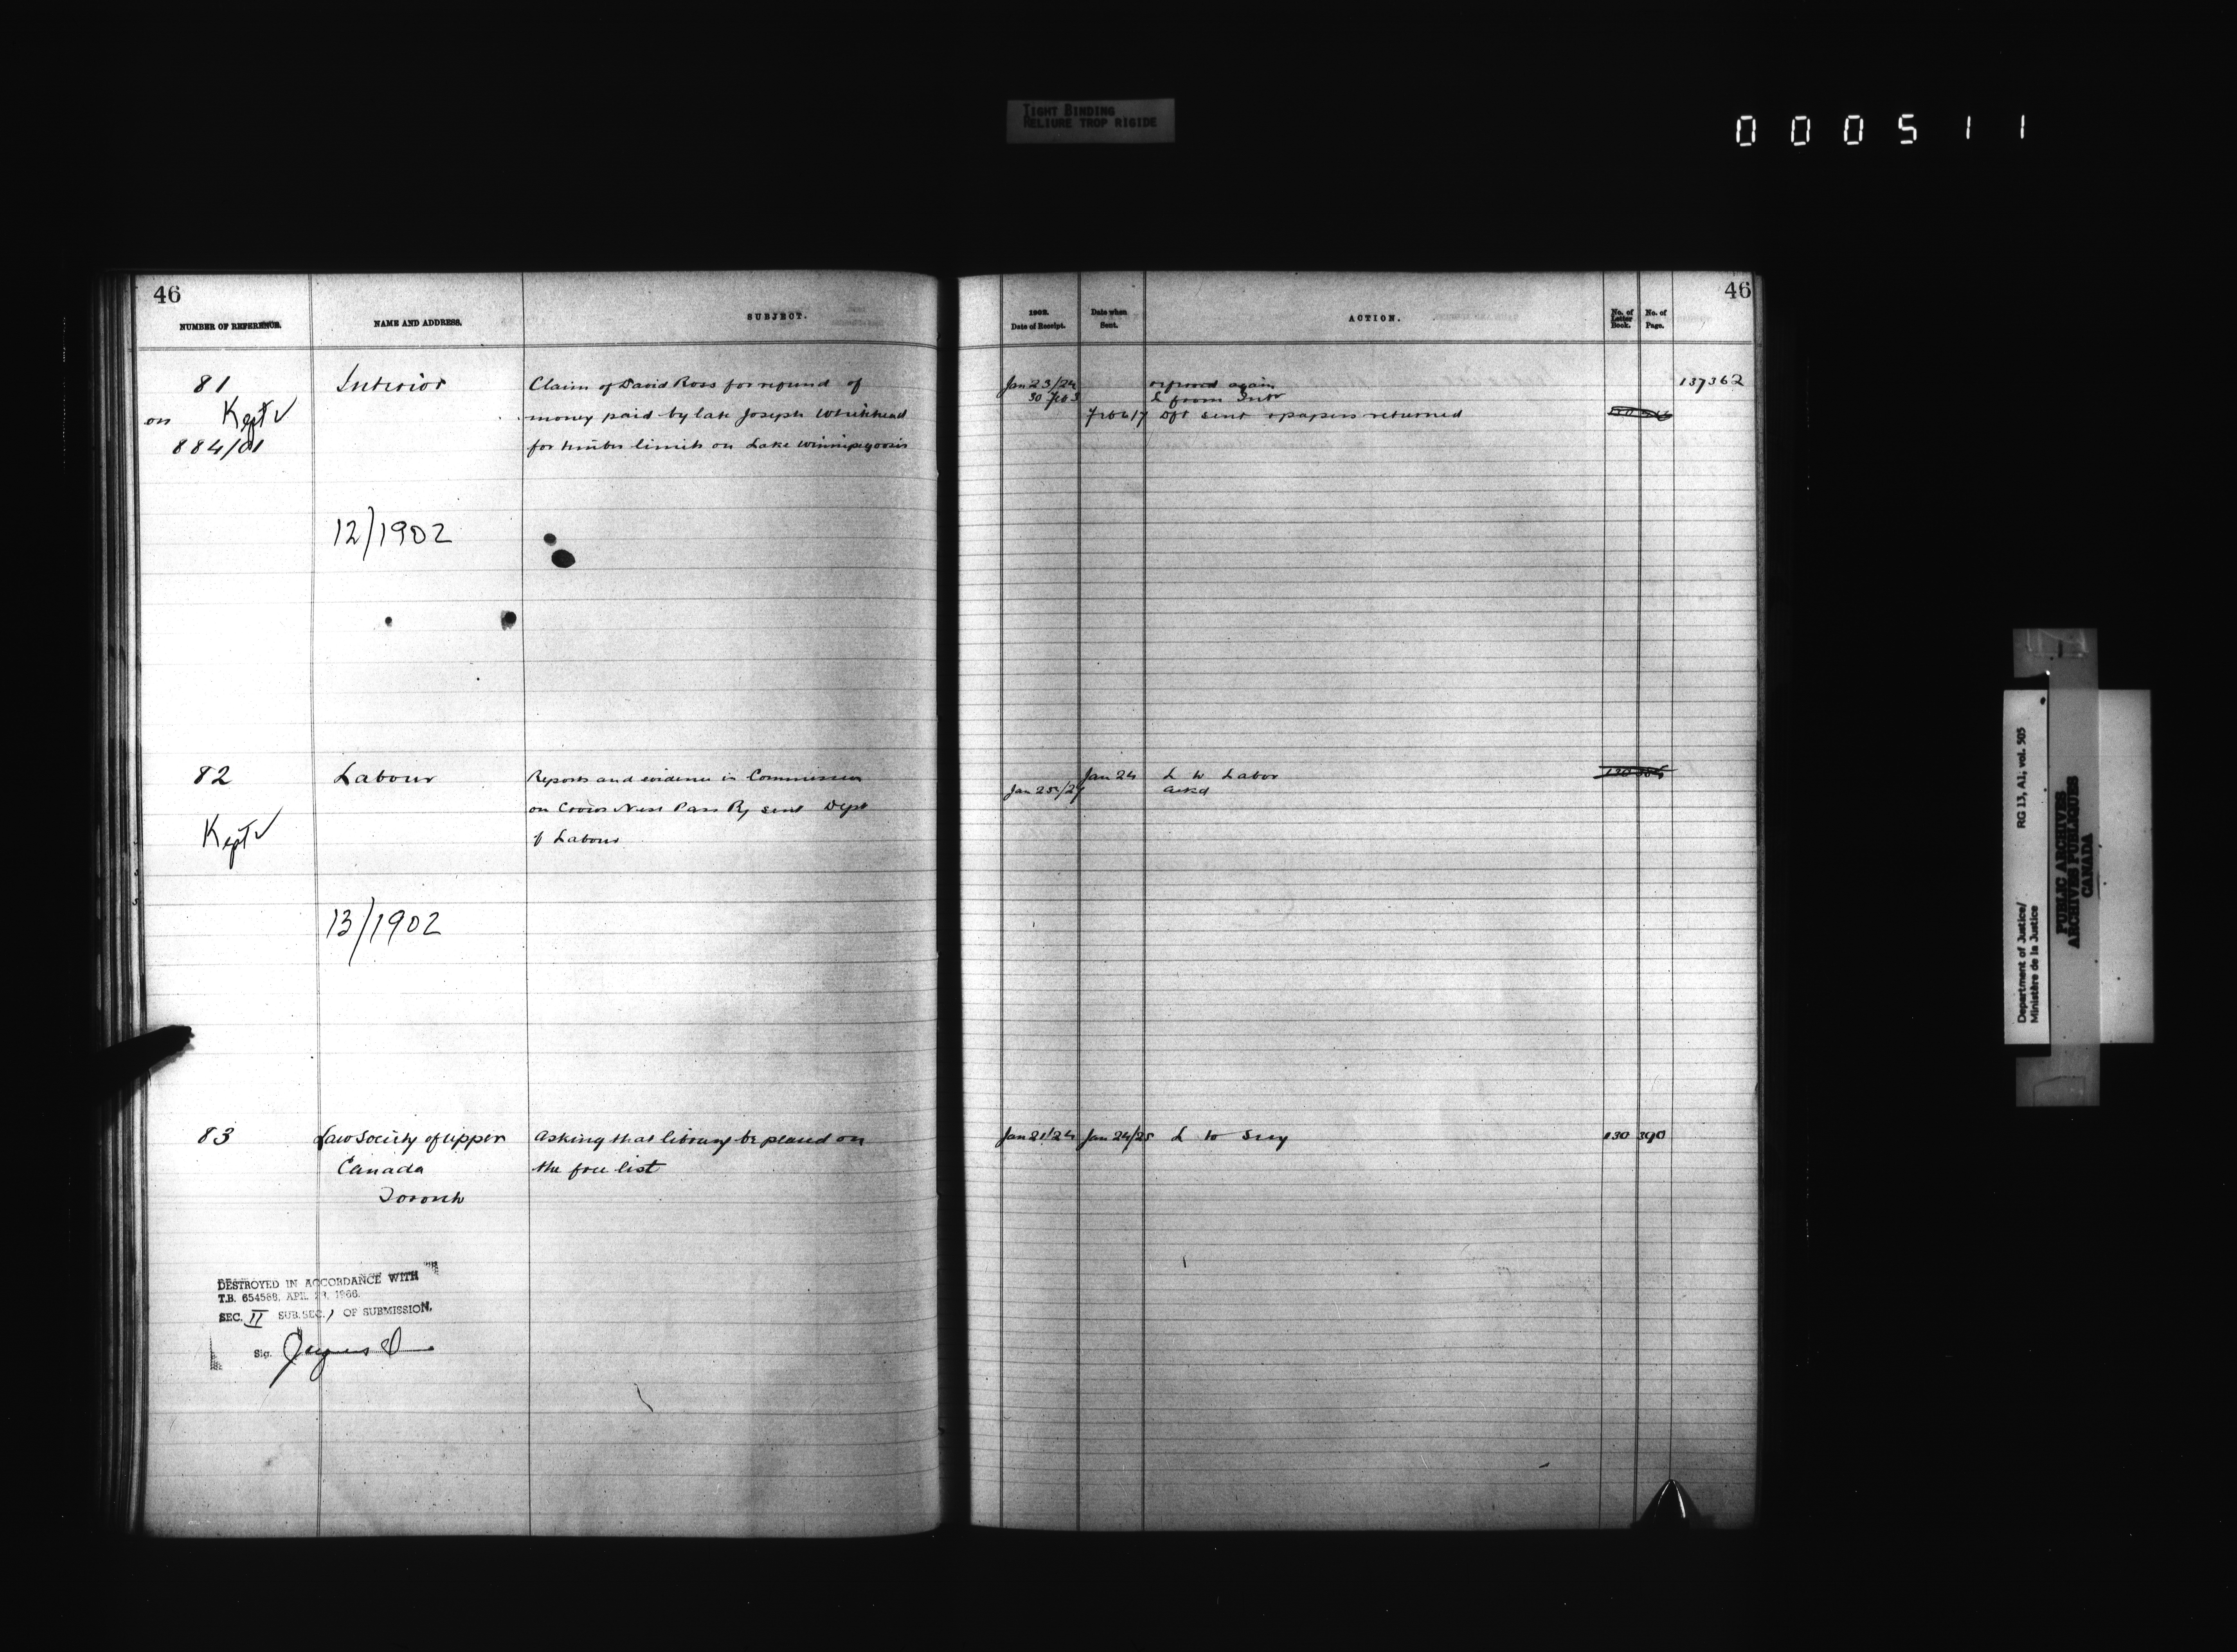 TIGHT BINDING
RELIURE TROP RIGIDE
000511
46
NUMBER OF REFERENCE.
NAME AND ADDRESS.
SUBJECT.
81
on Kept ✓
884/01
Interior
Claim of David Ross for refund of
money paid by late Joseph Whitehead
for timber limits on Lake Winnipegoosis
12/1902
82
Kept ✓
Labour
Reports and evidence in Commission
on Crows Nest Pass Ry sent Dept
of Labour
13/1902
83
Law Society of Upper
Canada
Toronto
Asking that library be placed on
the free list
DESTROYED IN ACCORDANCE WITH
T.B. 654588, APL. 28, 1966.
SEC. II SUB.SEC. 1 OF SUBMISSION.
Sig.
46
1902.
Date of Receipt.
Date when
Sent.
ACTION.
No. of
Letter
Book.
No. of
Page.
Jan 23/24 again 137362
30 Feb 3 L from Intr
Feb 17 Dft sent & papers returned
Jan 24 L to Labor
Jan 25/27 ackd
Jan 21/24 Jan 24/25 L to 130 390
Department of Justice/
Ministère de la Justice
RG 13, A1, vol. 505
PUBLIC ARCHIVES
ARCHIVES PUBLIQUES
CANADA